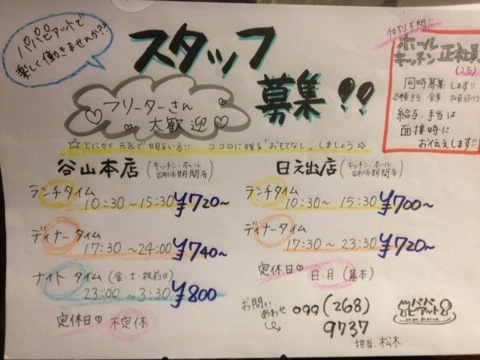 パパピアットで
楽しく働きませんか??
スタッフ
募集!!
フリーターさん
大歓迎
性別不問!!
ホール
キッチン
正社員
(2名)
同時募集します!!
給与、手当は
面接時に
お伝えします!!
☆とにかく元気で明るい方!! ココロに残る「おもてなし」しましょう☆
谷山本店
(キッチン・ホール
研修期間有)
ランチタイム
10:30~15:30 ¥720~
ディナータイム
17:30~24:00 ¥740~
ナイトタイム(金・土・祝前日)
23:00~3:30 ¥800
定休日♡不定休
日之出店
(キッチン・ホール
研修期間有)
ランチタイム
10:30~15:30 ¥700~
ディナータイム
17:30~23:30 ¥720~
定休日♡日・月(基本)
お問い
あわせ
099(268)
9737
担当 松木
パパ
ピアット